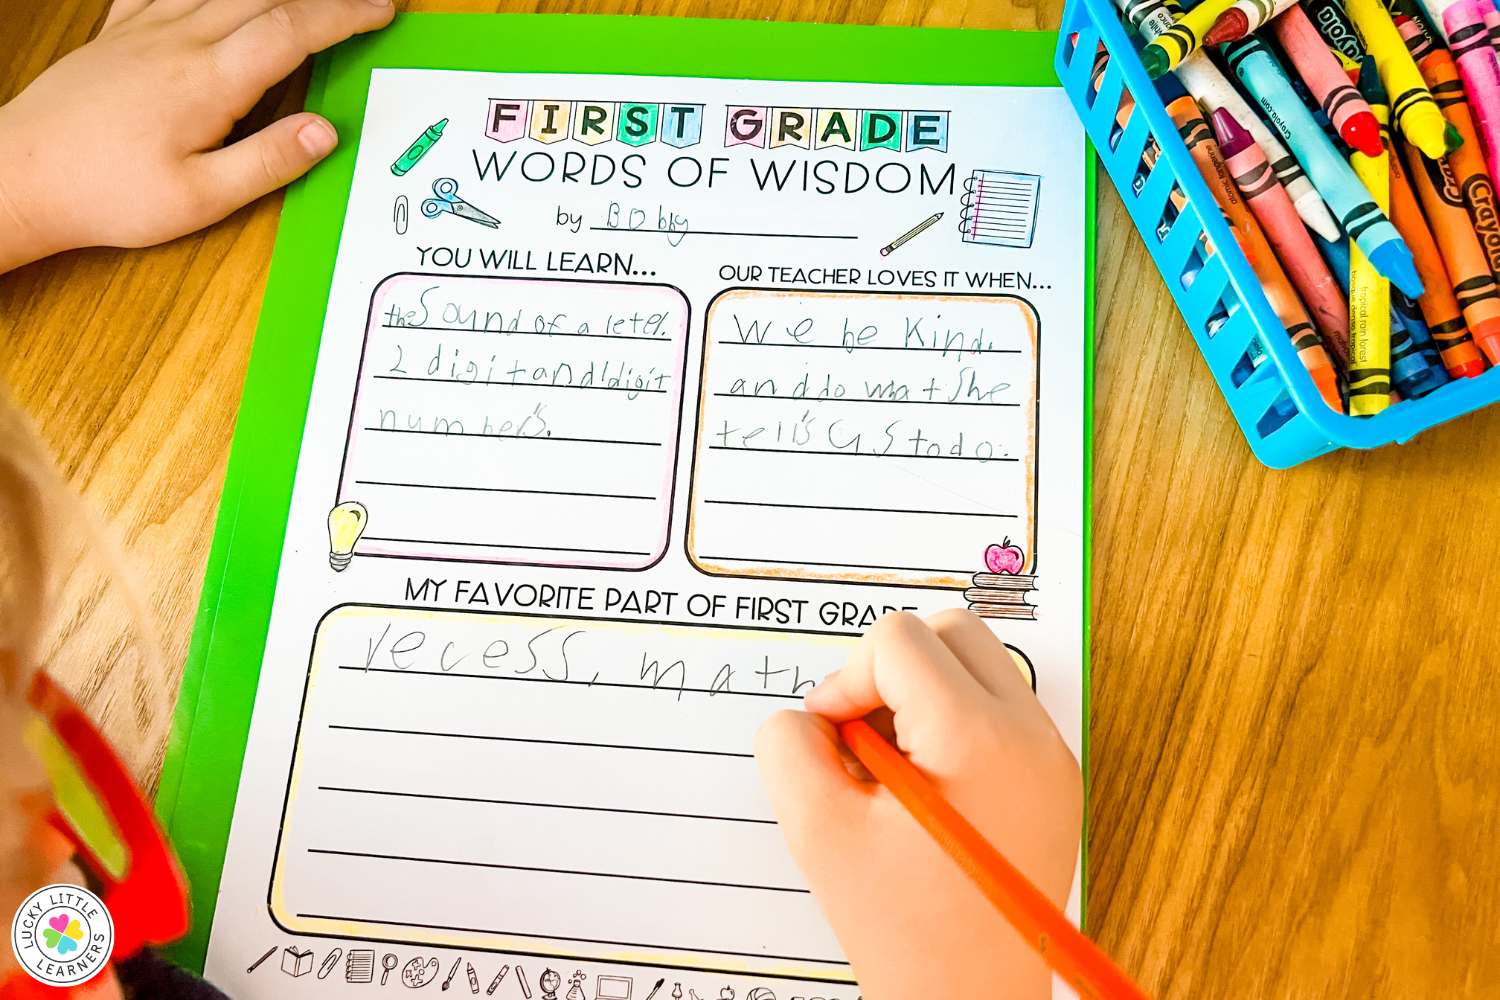 FIRST GRADE
WORDS OF WISDOM
by BObby
YOU WILL LEARN...
the Sound of a leter.
2 digit and 1 digit
number's.
OUR TEACHER LOVES IT WHEN...
We be kind.
and do what She
tell's us to do.
MY FAVORITE PART OF FIRST GRADE
recess, math
Crayola
Crayola
Crayola
atomic tangerine
tropical rain forest
LUCKY LITTLE
LEARNERS